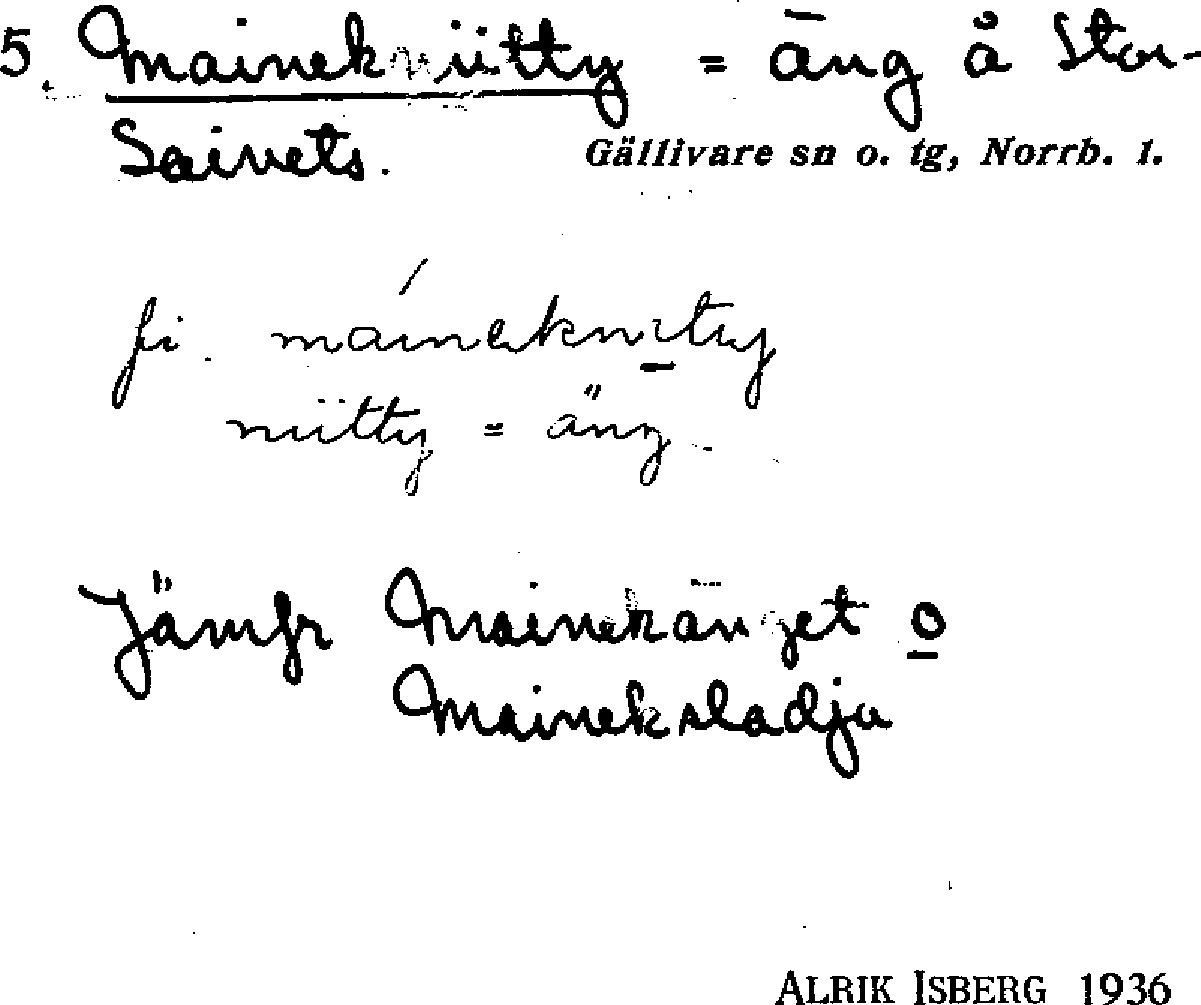 5. Mainekniitty = äng å Stor-
Saivets.
Gällivare sn o. tg, Norrb. l.
fi. máineknitty
niitty = äng
Jämfr Mainekänget o
Maineksladja
ALRIK ISBERG 1936